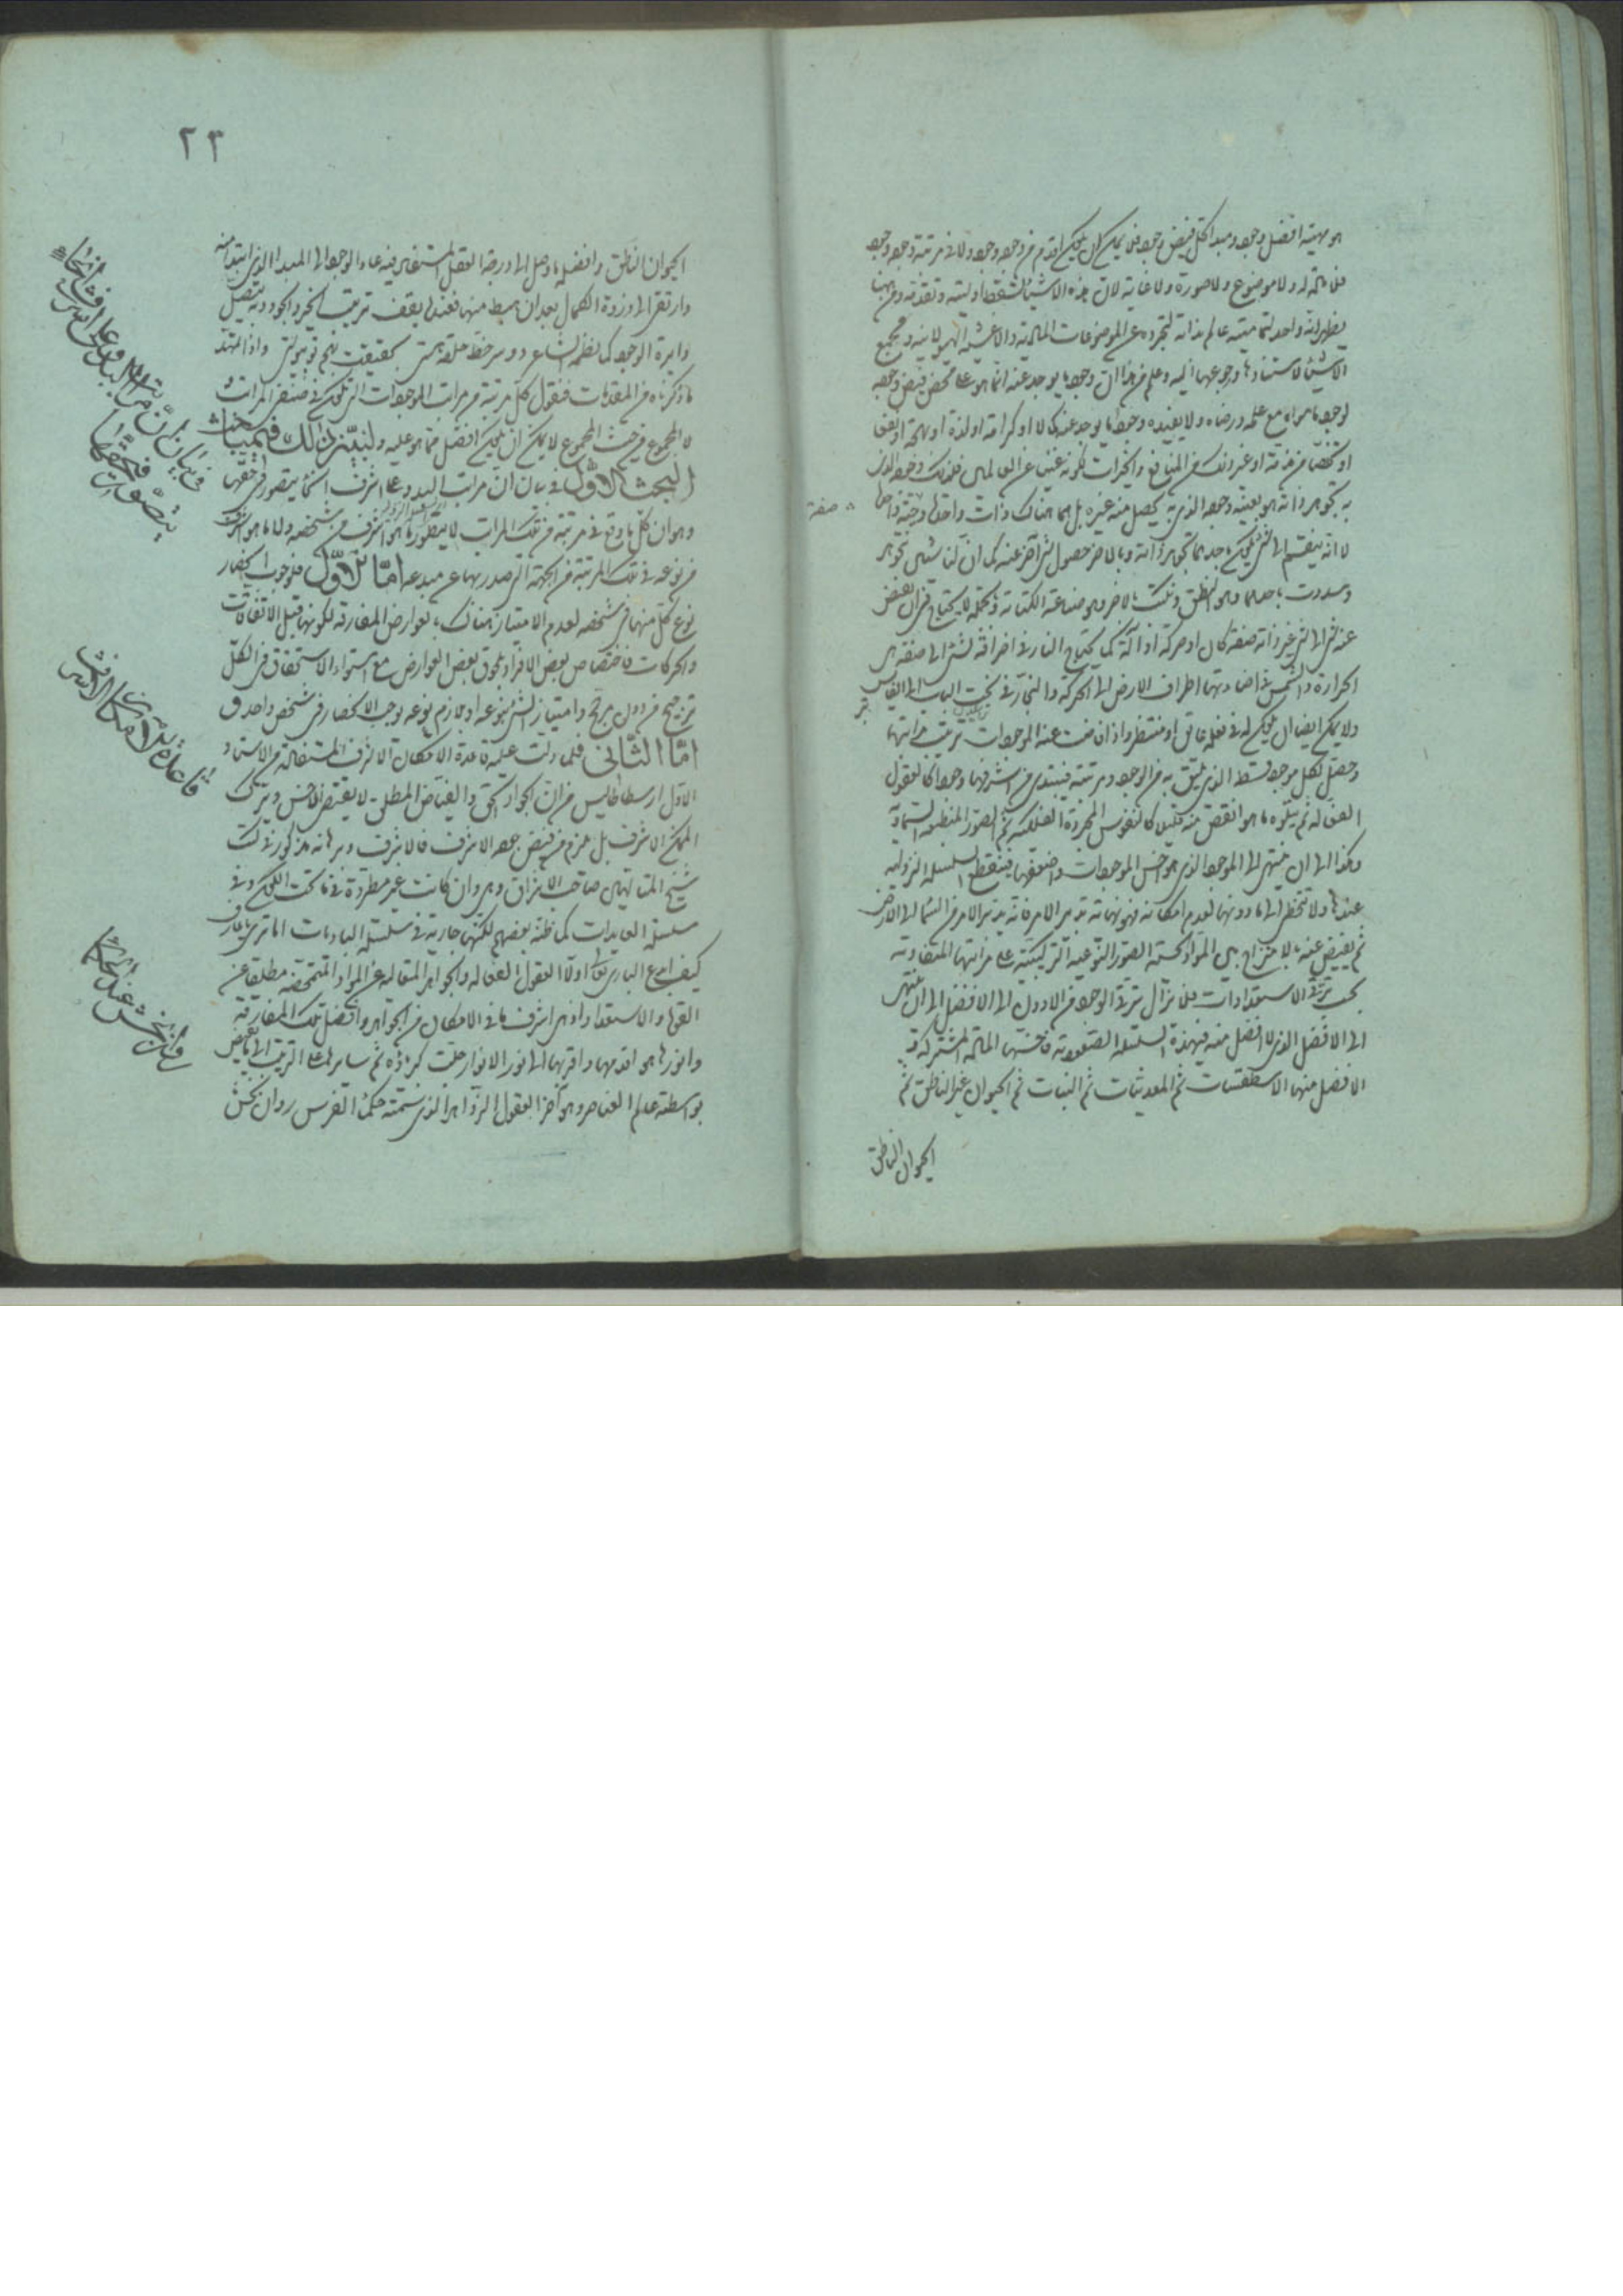 هو مهيته افضل وجود ومبدا لكل فيض وجود فلا يمكن ان يكون اقدم من وجوده وجود ولا في مرتبة وجوده وجود
فلا مادة له ولا موضوع ولا صورة ولا غاية لان هذه الاشياء تسقط اوليته وتقدمه ومن ههنا
يظهر انه واحد لتماميته عالم بذاته لتجرده عن الموضوعات المادية والاغشية الهيولانية وبجميع
الاشياء لاستنادها ورجوعها اليه وعلم من هذا ان وجود ما يوجد عنه انما هو على محض فيض وجوده
لوجود ما سواه مع علمه ورضاه ولا يفيده وجود ما يوجد عنه كمالا او كرامة او لذة او بهجة او نفعا
او تخلصا من مذمة او غير ذلك من المنافع والخيرات لكونه غنيا عن العالمين فلذلك وجوده الذي
به تجوهر ذاته هو بعينه وجوده الذي به يحصل منه غيره بل هما هناك ذات واحدة وحيثية واحدة
لا انه ينقسم الى شيئين يكون باحدهما تجوهر ذاته وبالاخر حصول شيء آخر عنه كما ان لنا شيئين نتجوهر
باحدهما وهو النطق ونكتب بالاخر وهو صناعة الكتابة وبالجملة لا يحتاج في ان يفيض
عنه شيء الى شيء غير ذاته صفة كان او حركة او آلة كما يحتاج النار في احراقه لشيء الى صفة هي
الحرارة والشمس في اضاءتها اطراف الارض الى الحركة والنجار في نحت الباب الى الفاس
ولا يمكن ايضا ان يكون له في فعله عائق او منتظر واذا فاضت عنه الموجودات ترتبت مراتبها
وحصل لكل موجود قسط الذي يليق به من الوجود ومرتبته فيبتدي من اشرفها وجودا كالعقول
الفعالة ثم يتلوه ما هو انقص منه قليلا كالنفوس المجردة الفلكية ثم الصور المنطبعة السماوية
وهكذا الى ان ينتهي الى الموجود الذي هو اخس الموجودات واضعفها فينقطع السلسلة النزولية
عندها ولا تتخطى الى ما دونها لعدم امكانه فهو نهاية تدبير الامر فانه يدبر الامر من السماء الى الارض
ثم يفيض عنه بالامتزاج بين المواد الصور النوعية التركيبية على مراتبها المتفاوتة
بحسب ترقي الاستعدادات فلا يزال ترقى الوجود من الادون الى الافضل الى ان ينتهي
الى الافضل الذي لا افضل منه فهذه السلسلة الصعودية فاخسها المادة المشتركة و
الافضل منها الاسطقسات ثم المعدنيات ثم النبات ثم الحيوان غير الناطق ثم
الحيوان الناطق
صفة
٢٣
الحيوان الناطق وافضله ما وصل الى درجة العقل المستفاد ففيه عاد الوجود الى المبدا الذي ابتدا منه
وارتقى الى ذروة الكمال بعد ان هبط منها فعند ما يقف ترتيب الخير والجود وبه يتصل
دايرة الوجود كما نظمه الشاعر دو سر خط حلقه هستى بحقيقت بهم تو پيوستى واذا تمهد
ما ذكرناه من المقدمات فنقول كل مرتبة من مراتب الموجودات التي تكون في المراتب
لا المجموع من حيث المجموع لا يمكن ان يكون افضل مما هو عليه ولنبين ذلك في مباحث
البحث الاول في بيان ان مراتب البدو على اشرف انحاء يتصور في حقها
وهو ان كل ما وقع في مرتبة من تلك المراتب لا يتصور ما هو اشرف من شخصه ولا ما هو اشرف
من نوعه في تلك المرتبة من الجهة التي صدر بها عن مبدعه اما الاول فلوجوب انحصار
نوع كل منها في شخصه لعدم الامتياز هناك بالعوارض المفارقة لكونها قبل الاتفاقات
والحركات فاختصاص بعض الافراد بلحوق بعض العوارض مع استواء الاستحقاق في الكل
ترجيح من دون مرجح وامتياز الشيء بنوعه او بلازم نوعه يوجب الانحصار في شخص واحد و
اما الثاني فلما دلت عليه قاعدة الامكان الاشرف المستفادة من الاستاد
الاول ارسطاطاليس من ان الجواد الحق والفياض المطلق لا يقتضي الاخس ويترك
الممكن الاشرف بل يلزم من فيض جوده الاشرف فالاشرف وبرهانه مذكور في كتب
شيخ المتالهين صاحب الاشراق وهي وان كانت غير مطردة في ما تحت الفلك وفي
سلسلة العايدات كما ظنه بعضهم لكنها جارية في سلسلة الباديات اما ترى يا عارف
كيف ابدع الباري تعالى اولا العقول الفعالة والجواهر المتعالية عن المواد المتمحضة مطلقا عن
القوة والاستعداد اذ هي اشرف ما في الامكان من الجواهر وافضل تلك المفارقة
وانورها هو اقدمها واقربها الى نور الانوار جلت كبرياؤه ثم سايرها على الترتيب الى ما يفيض
بواسطته عالم العناصر وهو آخر العقول الزواهر الذي سمته حكماء الفرس روان بخش
في بيان ان مراتب البدو على اشرف انحاء
يتصور في حقها
قاعدة امكان الاشرف
روان بخش عند الحكماء